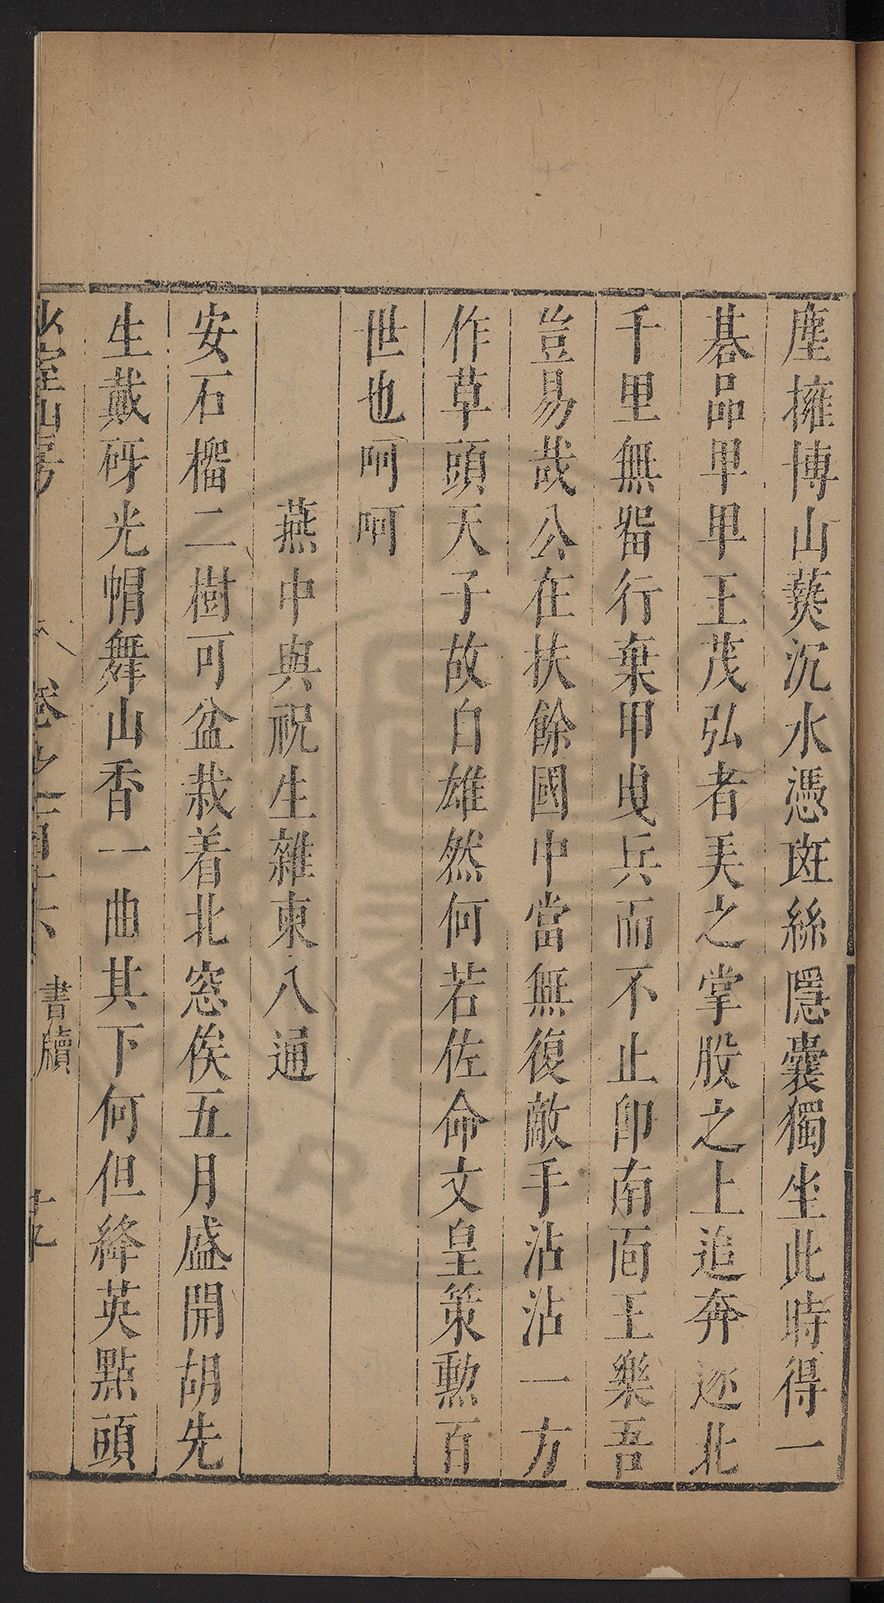 塵擁博山爇沉水憑斑絲隱囊獨坐此時得一
棊品早甲王茂弘者美之掌股之上追奔逐北
千里無畱行棄甲曳兵而不止卽南面王樂吾
豈易哉公在扶餘國中當無復敵手沾沾一方
作草頭天子故自雄然何若佐命文皇策勲百
世也呵呵
燕中與祝生雜柬八通
安石榴二樹可盆栽着北窓俟五月盛開胡先
生戴砑光帽舞山香一曲其下何但絳英點頭
山房 卷之一百十六 書牘